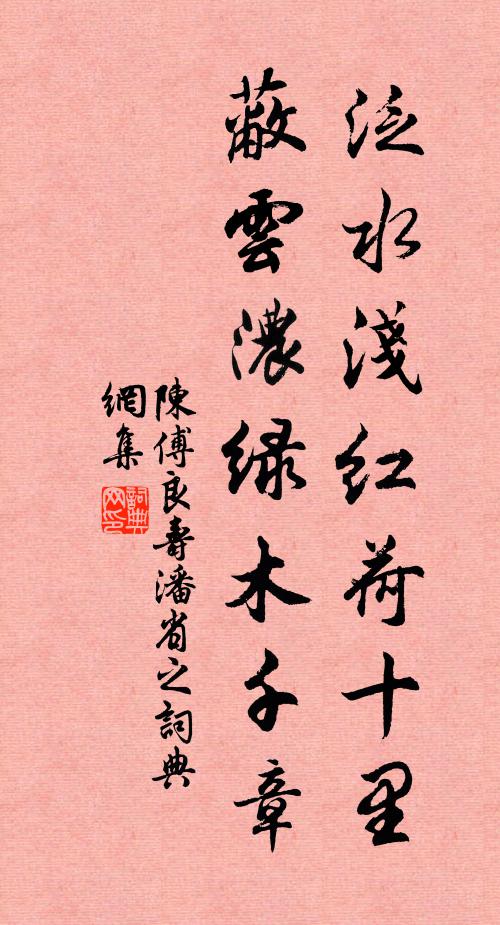 泛水淺紅荷十里
蔽雲濃绿木千章
陳傅良壽潘省之詞典
網集
詞典
网印